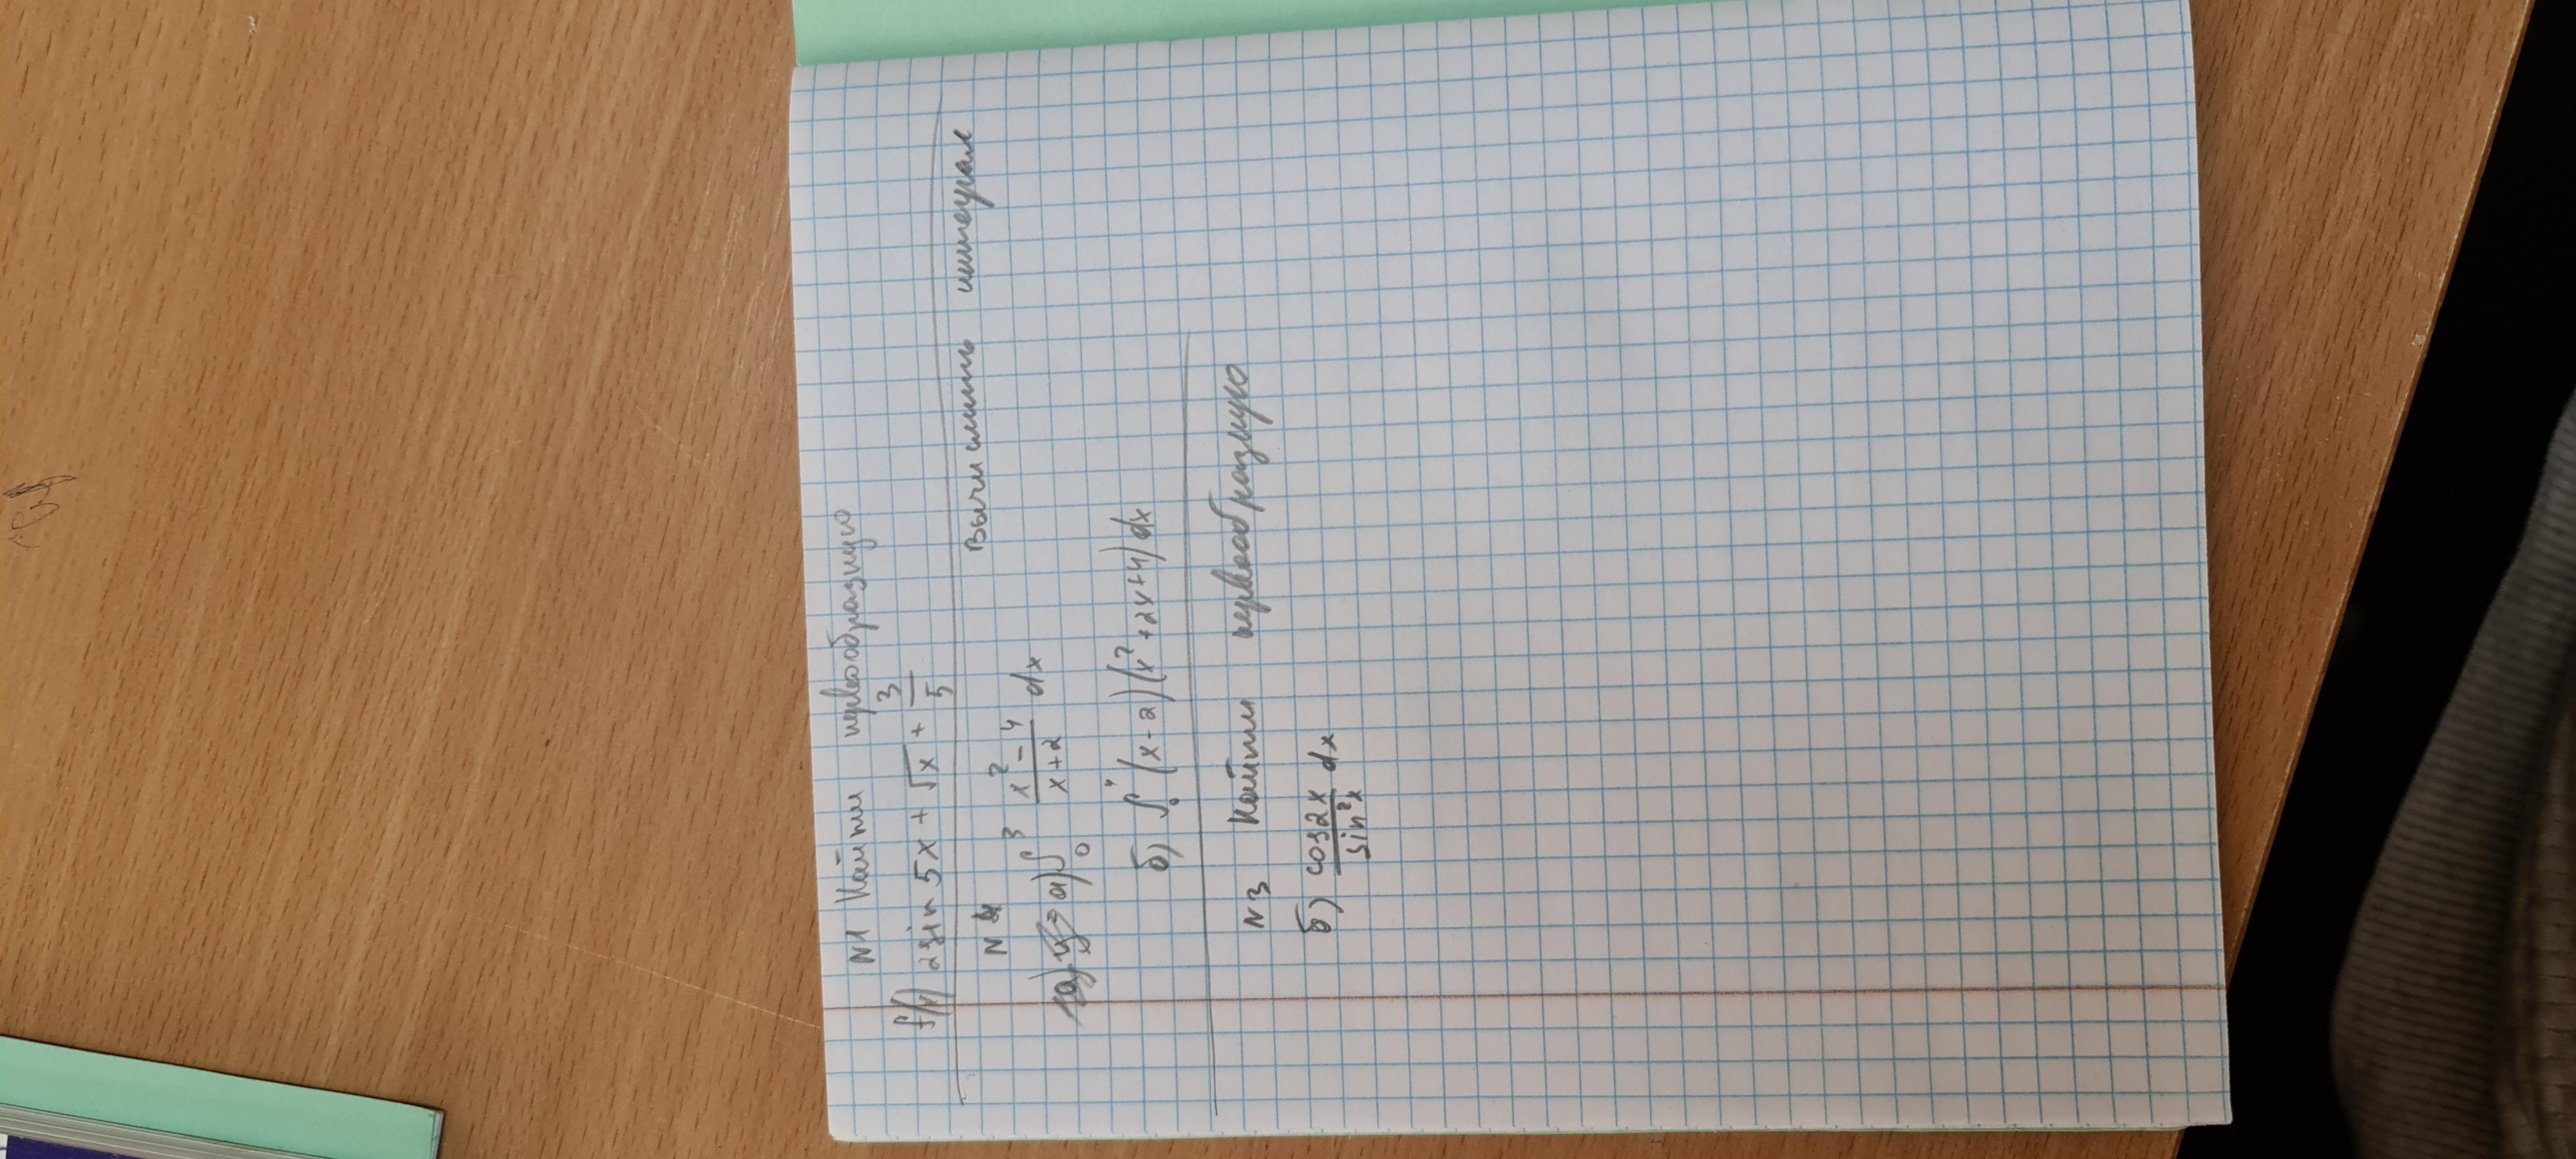 N1 Найти первообразную
f(x) 2sin 5x + √x + 3/5
N2 Вычислить интеграл
а) ∫₀³ (x² - 4)/(x + 2) dx
б) ∫₀ (x - 2)(x² + 2x + 4) dx
N3 Найти первообразную
б) cos2x/sin²x dx